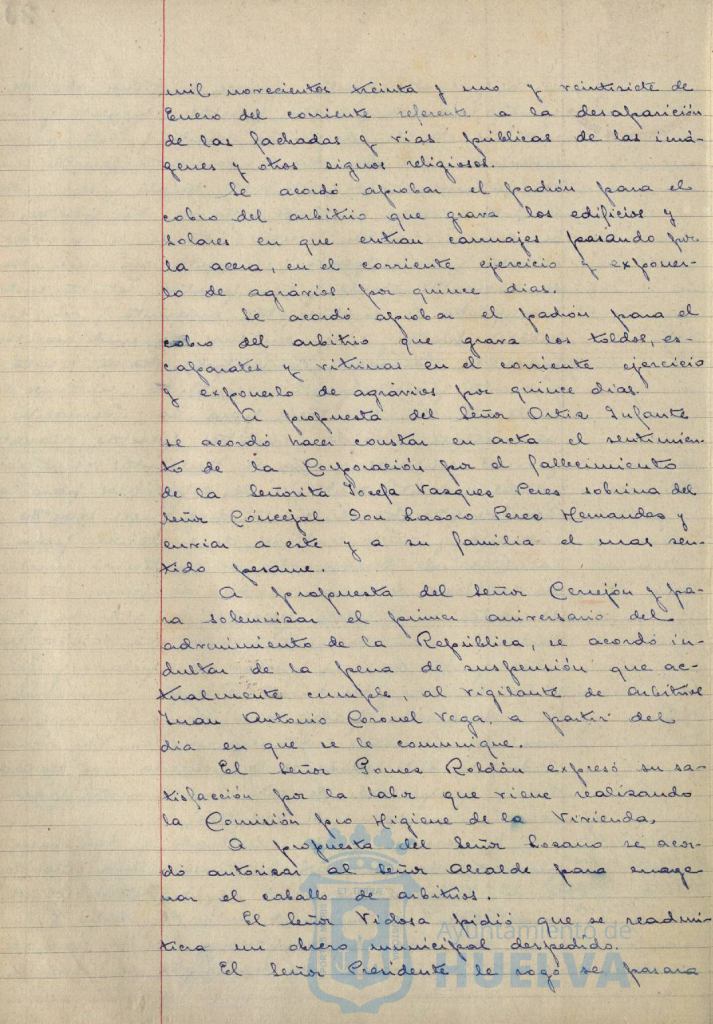 mil novecientos treinta y uno y veintisiete de
Enero del corriente referente a la desaparición
de las fachadas y vias públicas de las imá-
genes y otros signos religiosos.
Se acordó aprobar el padrón para el
cobro del arbitrio que grava los edificios y
solares en que entran carruajes pasando por
la acera, en el corriente ejercicio y exponer-
lo de agrávios por quince dias.
Se acordó aprobar el padrón para el
cobro del arbitrio que grava los toldos, es-
caparates y vitrinas en el corriente ejercicio
y exponerlo de agrávios por quince dias.
A propuesta del Señor Ortiz Infante
se acordó hacer constar en acta el sentimien-
to de la Corporación por el fallecimiento
de la Señorita Josefa Vazquez Perez sobrina del
Señor Concejal Don Lazaro Perez Hernandez y
enviar a este y a su familia el mas sen-
tido pesame.
A propuesta del Señor Cerrejón y pa-
ra solemnizar el primer aniversario del
advenimiento de la República, se acordó in-
dultar de la pena de suspensión que ac-
tualmente cumple, al vigilante de arbitrios
Juan Antonio Coronel Vega, a partir del
dia en que se le comunique.
El Señor Gomez Roldán expresó su sa-
tisfacción por la labor que viene realizando
la Comisión pro Higiene de la Vivienda,
A propuesta del Señor Lozano se acor-
dó autorizar al Señor Alcalde para enage
nar el caballo de arbitrios.
El Señor Vidosa pidió que se readmi-
tiera un obrero municipal despedido.
El Señor Presidente le rogó se pasara
Ayuntamiento de
HUELVA